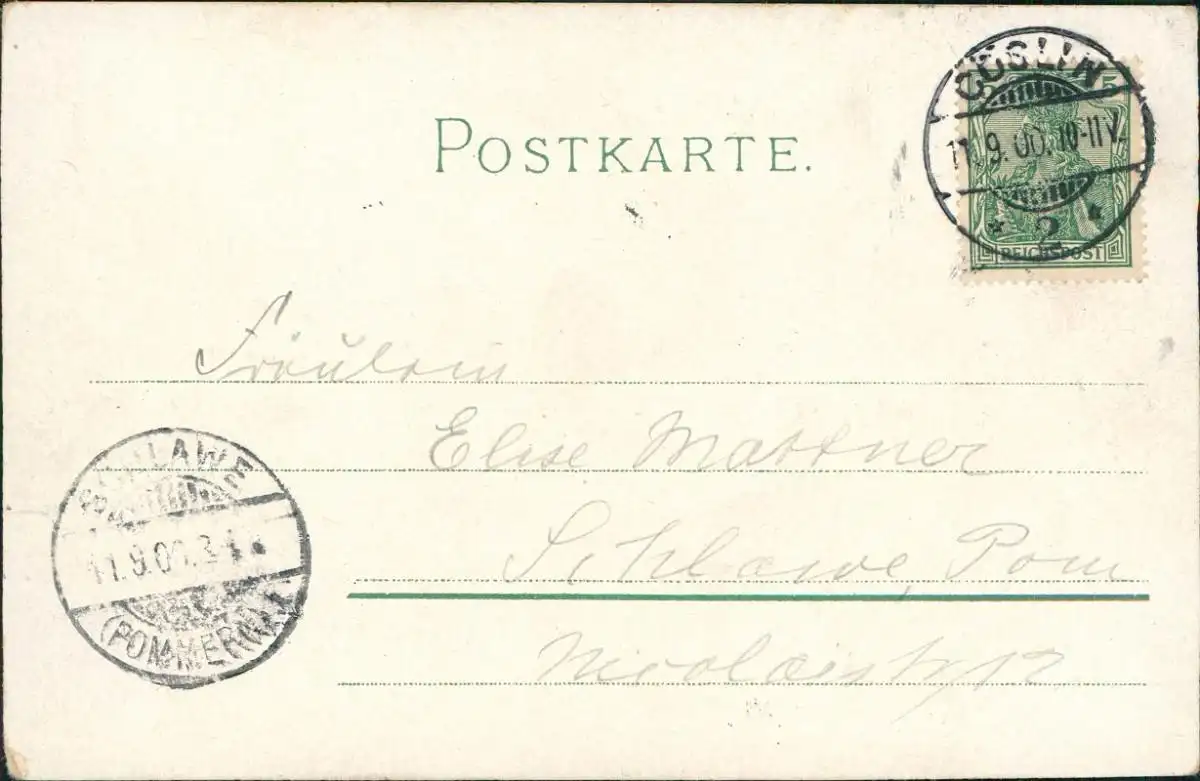 POSTKARTE.
CÖSLIN
5
11.9.00.10-11V.
* 2 *
REICHSPOST
Fräulein
Elise Mattner
Schlawe, Pom
SCHLAWE
11.9.00.3-4
(POMMERN)
Nicolaistr 12